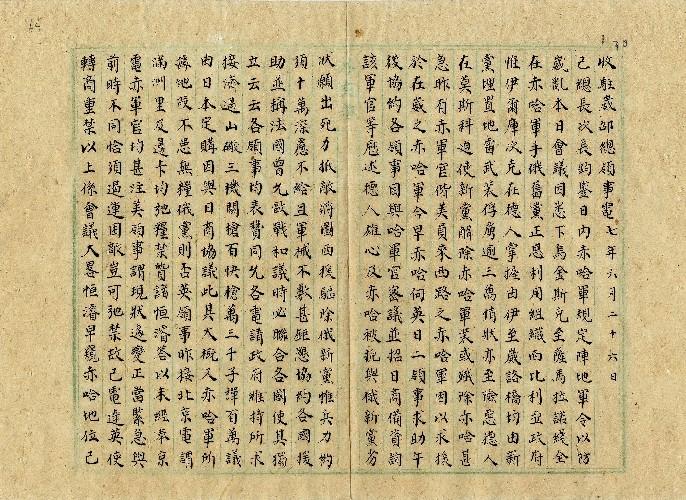 收駐崴邵總領事電 七年六月二十六日
己總長次長鈞鑒日內赤哈軍規定陣地軍令以防
亂本日會議因悉下烏金斯克至薩馬拉諾綫全
在赤哈軍手俄舊黨正思利用組織西比利亞政府
惟伊爾庫次克在德人掌握由伊至崴諸橋均由新
黨埋置地雷武裝俘虜逾三萬情狀亦至險惡德人
在莫斯科迫使新黨解除赤哈軍裝或殲除赤哈甚
急昨有赤軍官所美員來西路之赤哈軍因以求援
於在崴之赤哈軍今早赤哈伺英日二領事求助午
後協約各領事因與哈軍官密議並招日商備資詢
該軍官等歷述德人雄心及赤哈被扼與俄新黨劣
狀願出死力抵敵消圍西援驅除俄新黨惟兵力約
項十萬深慮不給且軍械不敷甚距懇協約各國援
助並稱法國曾允設戰和議時必聯合各國使其獨
立云云各領事均表贊同允各電請政府維持所求
接濟造山砲三機關槍百快槍萬三千子彈百萬議
由日本定購因與日商協議此其大概又赤哈軍所
據地段不患無糧俄黨則否英領事昨接北京電謂
滿洲里及邊卡均弛糧禁贊諸恒濬答以未經奉京
電赤軍官均甚注美領事謂現狀遞變正當緊急與
前時不同恰須過運困敵豈可弛禁故已電達英使
轉商重禁以上係會議大畧恒濬早窺赤哈地位已